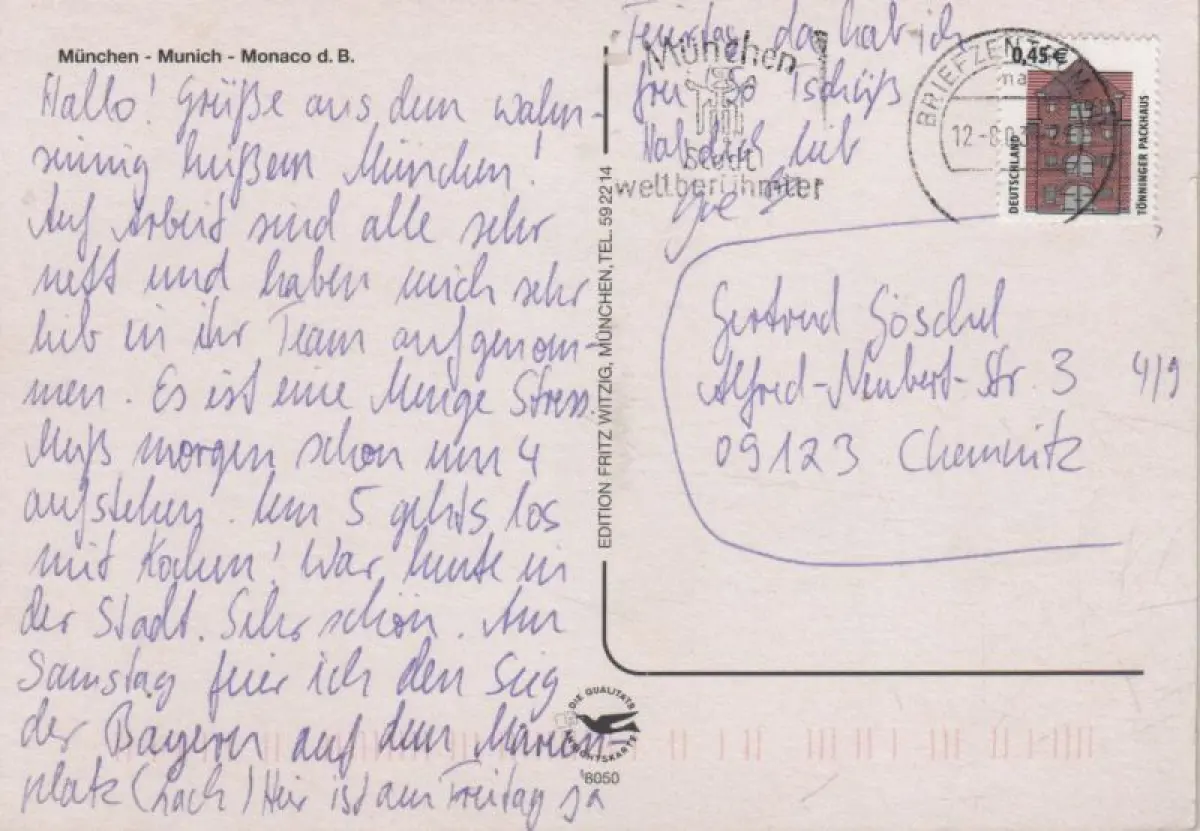 München - Munich - Monaco d. B.
Hallo! Grüße aus dem wahn-
sinnig heißem München!
Auf Arbeit sind alle sehr
nett und haben mich sehr
lieb in ihr Team aufgenom-
men. Es ist eine Menge Stress.
Muß morgen schon um 4
aufstehen. Um 5 gehts los
mit Kochen! War heute in
der Stadt. Sehr schön. Am
Samstag feier ich den Sieg
der Bayern auf dem Marien-
platz (lach) Hier ist am Freitag ja
Feiertag da hab ich
frei So Tschüß
Hab dich lieb
EDITION FRITZ WITZIG, MÜNCHEN, TEL. 592214
DIE QUALITÄTS
ANSICHTSKARTE
8050
München
Stadt
weltberühmter
BRIEFZENTRUM
12-8.0
0,45 €
DEUTSCHLAND
TÖNNINGER PACKHAUS
Gertrud Göschel
Alfred-Neubert-Str. 3 4/9
09123 Chemnitz